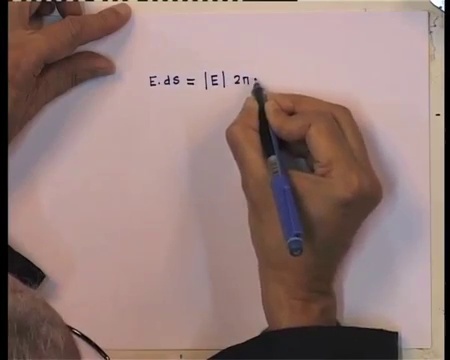 E.ds = |E| 2π